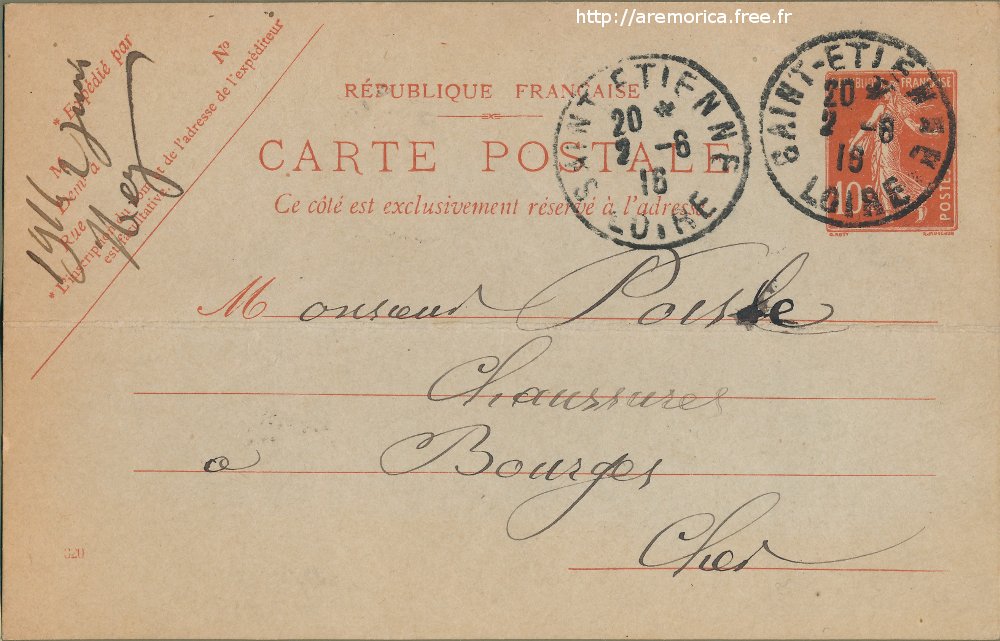 http://aremorica.free.fr
* Expédié par
M
Dem^t à
Rue
N°
* L'inscription du nom et de l'adresse de l'expéditeur
est facultative.
1916 2 Juin
RÉPUBLIQUE FRANÇAISE
CARTE POSTALE
Ce côté est exclusivement réservé à l'adresse
SAINT-ETIENNE
20 *
2 -6
16
LOIRE
SAINT-ETIENNE
20 *
2 -6
16
LOIRE
10
POSTES
Monsieur
Chaussures
à Bourges
Cher
320